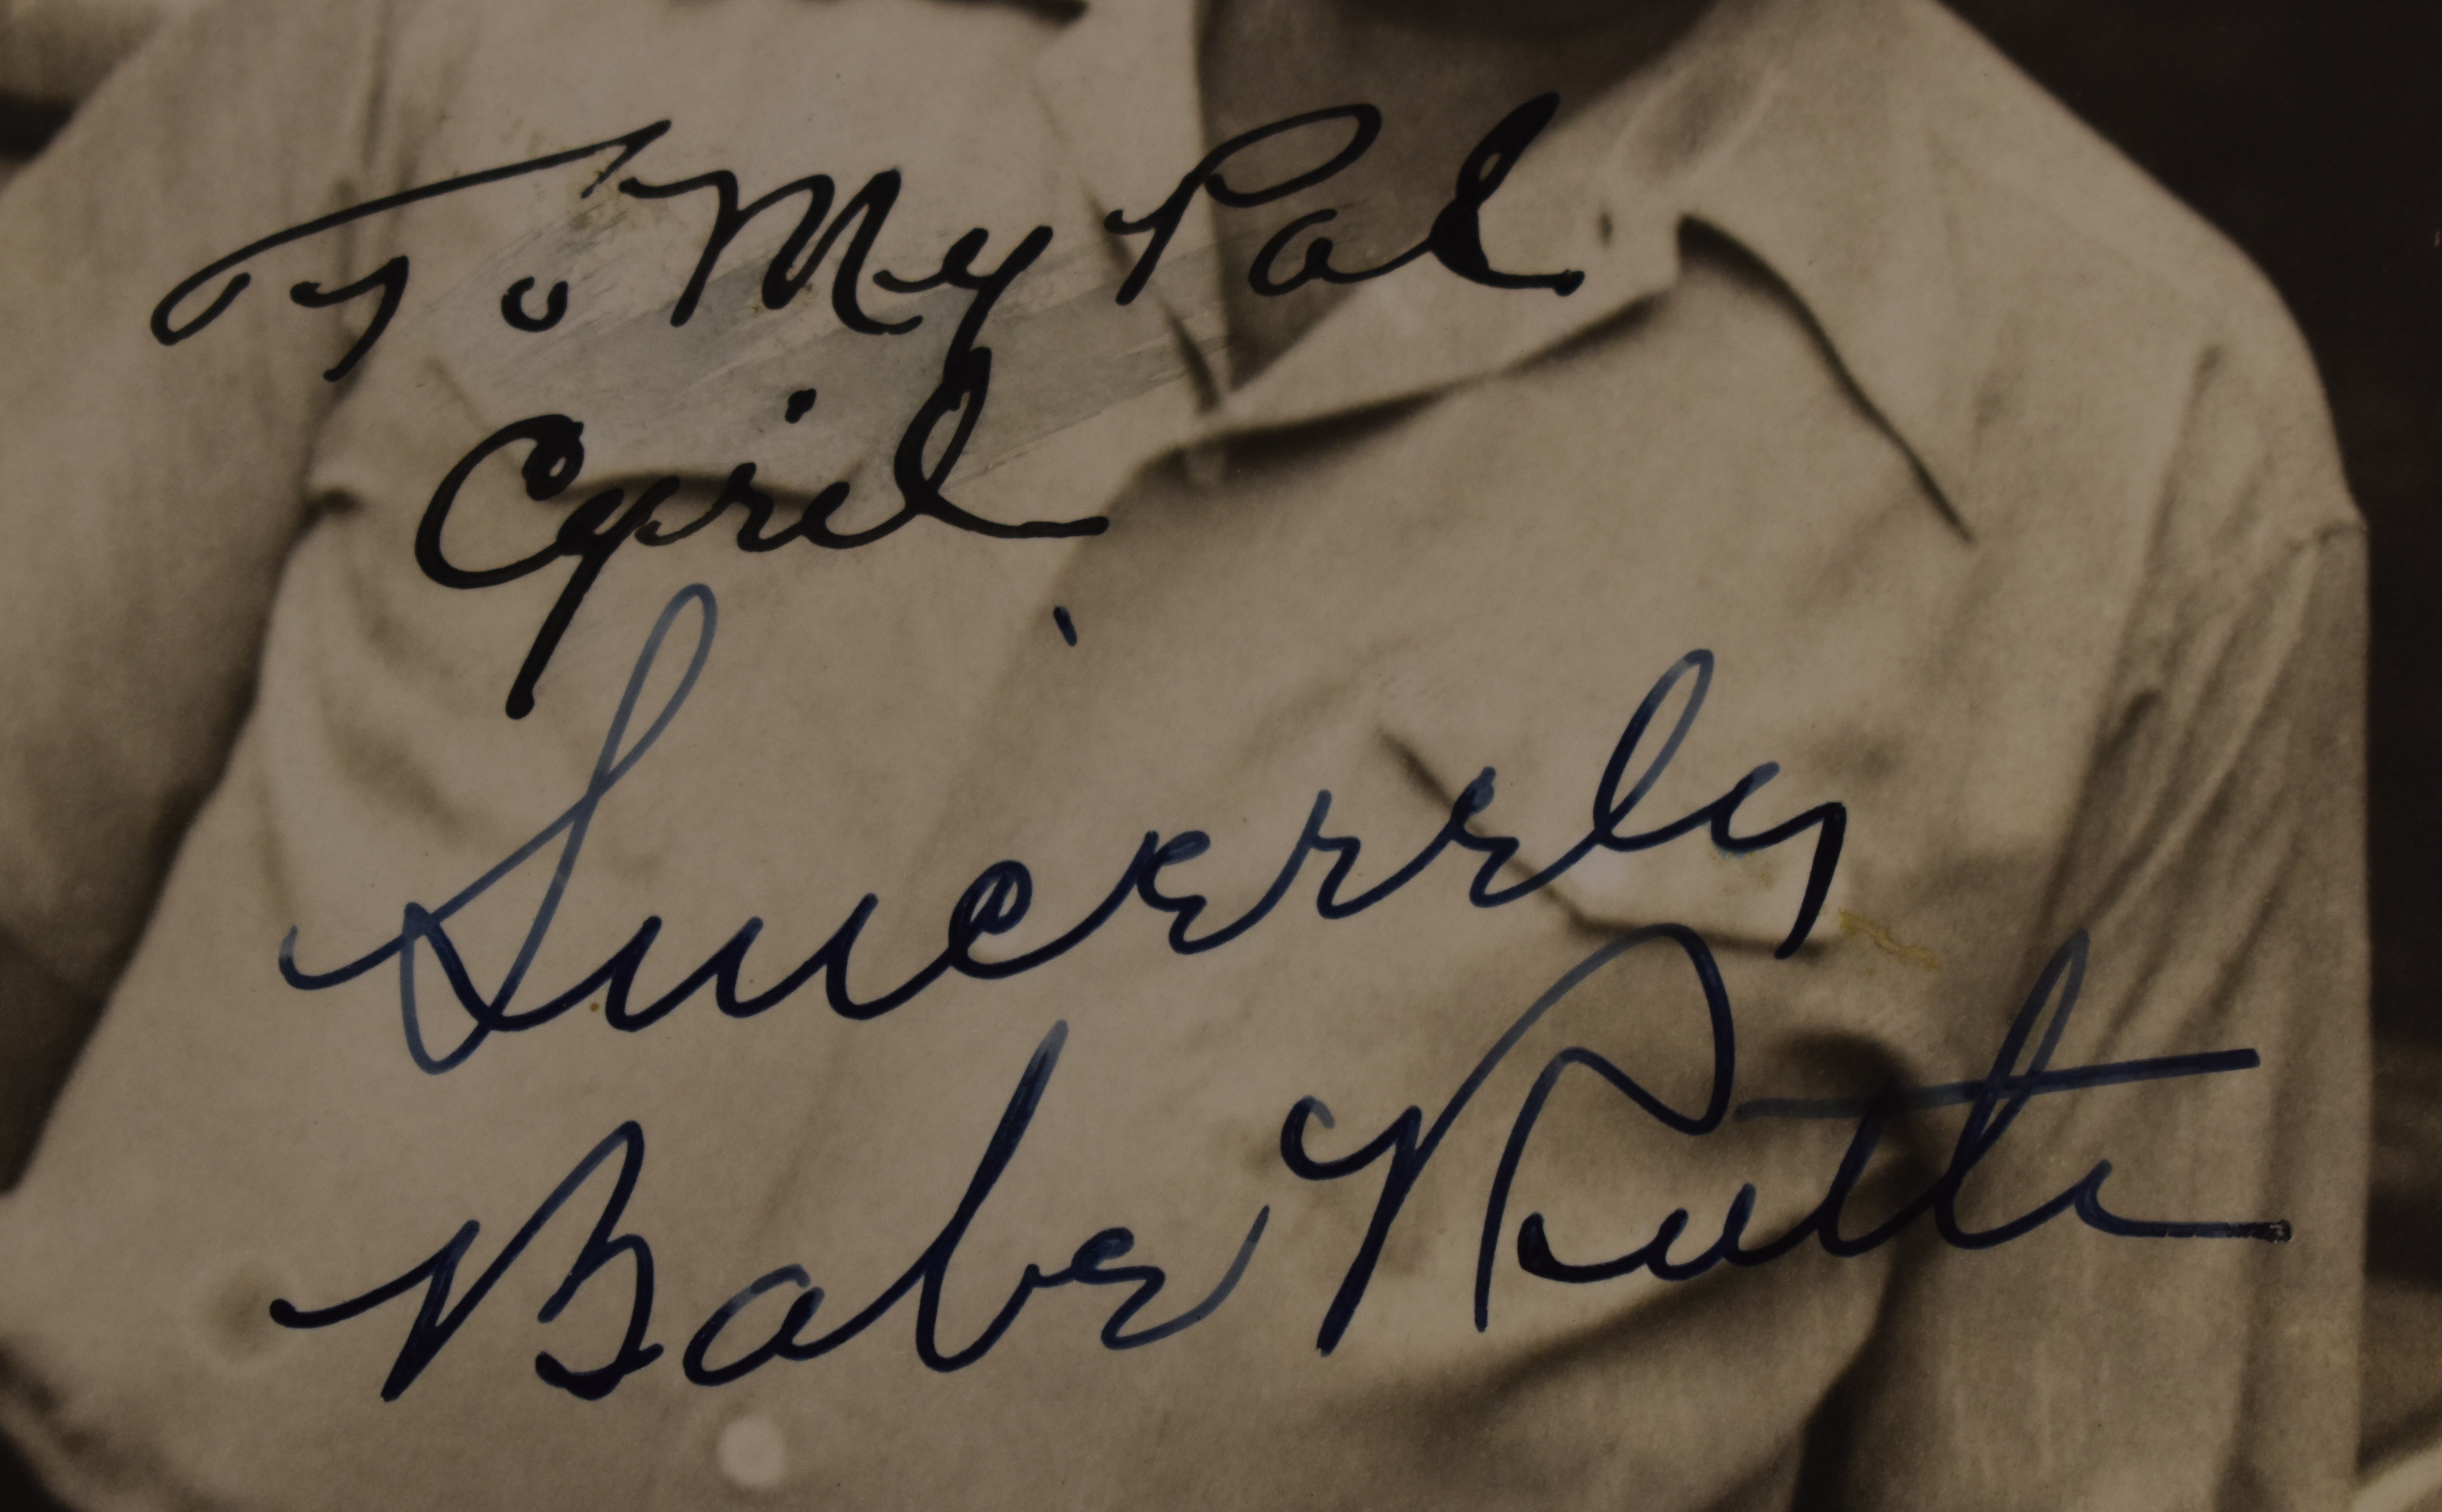 To My Pal
Cyril
Sincerely
Babe Ruth